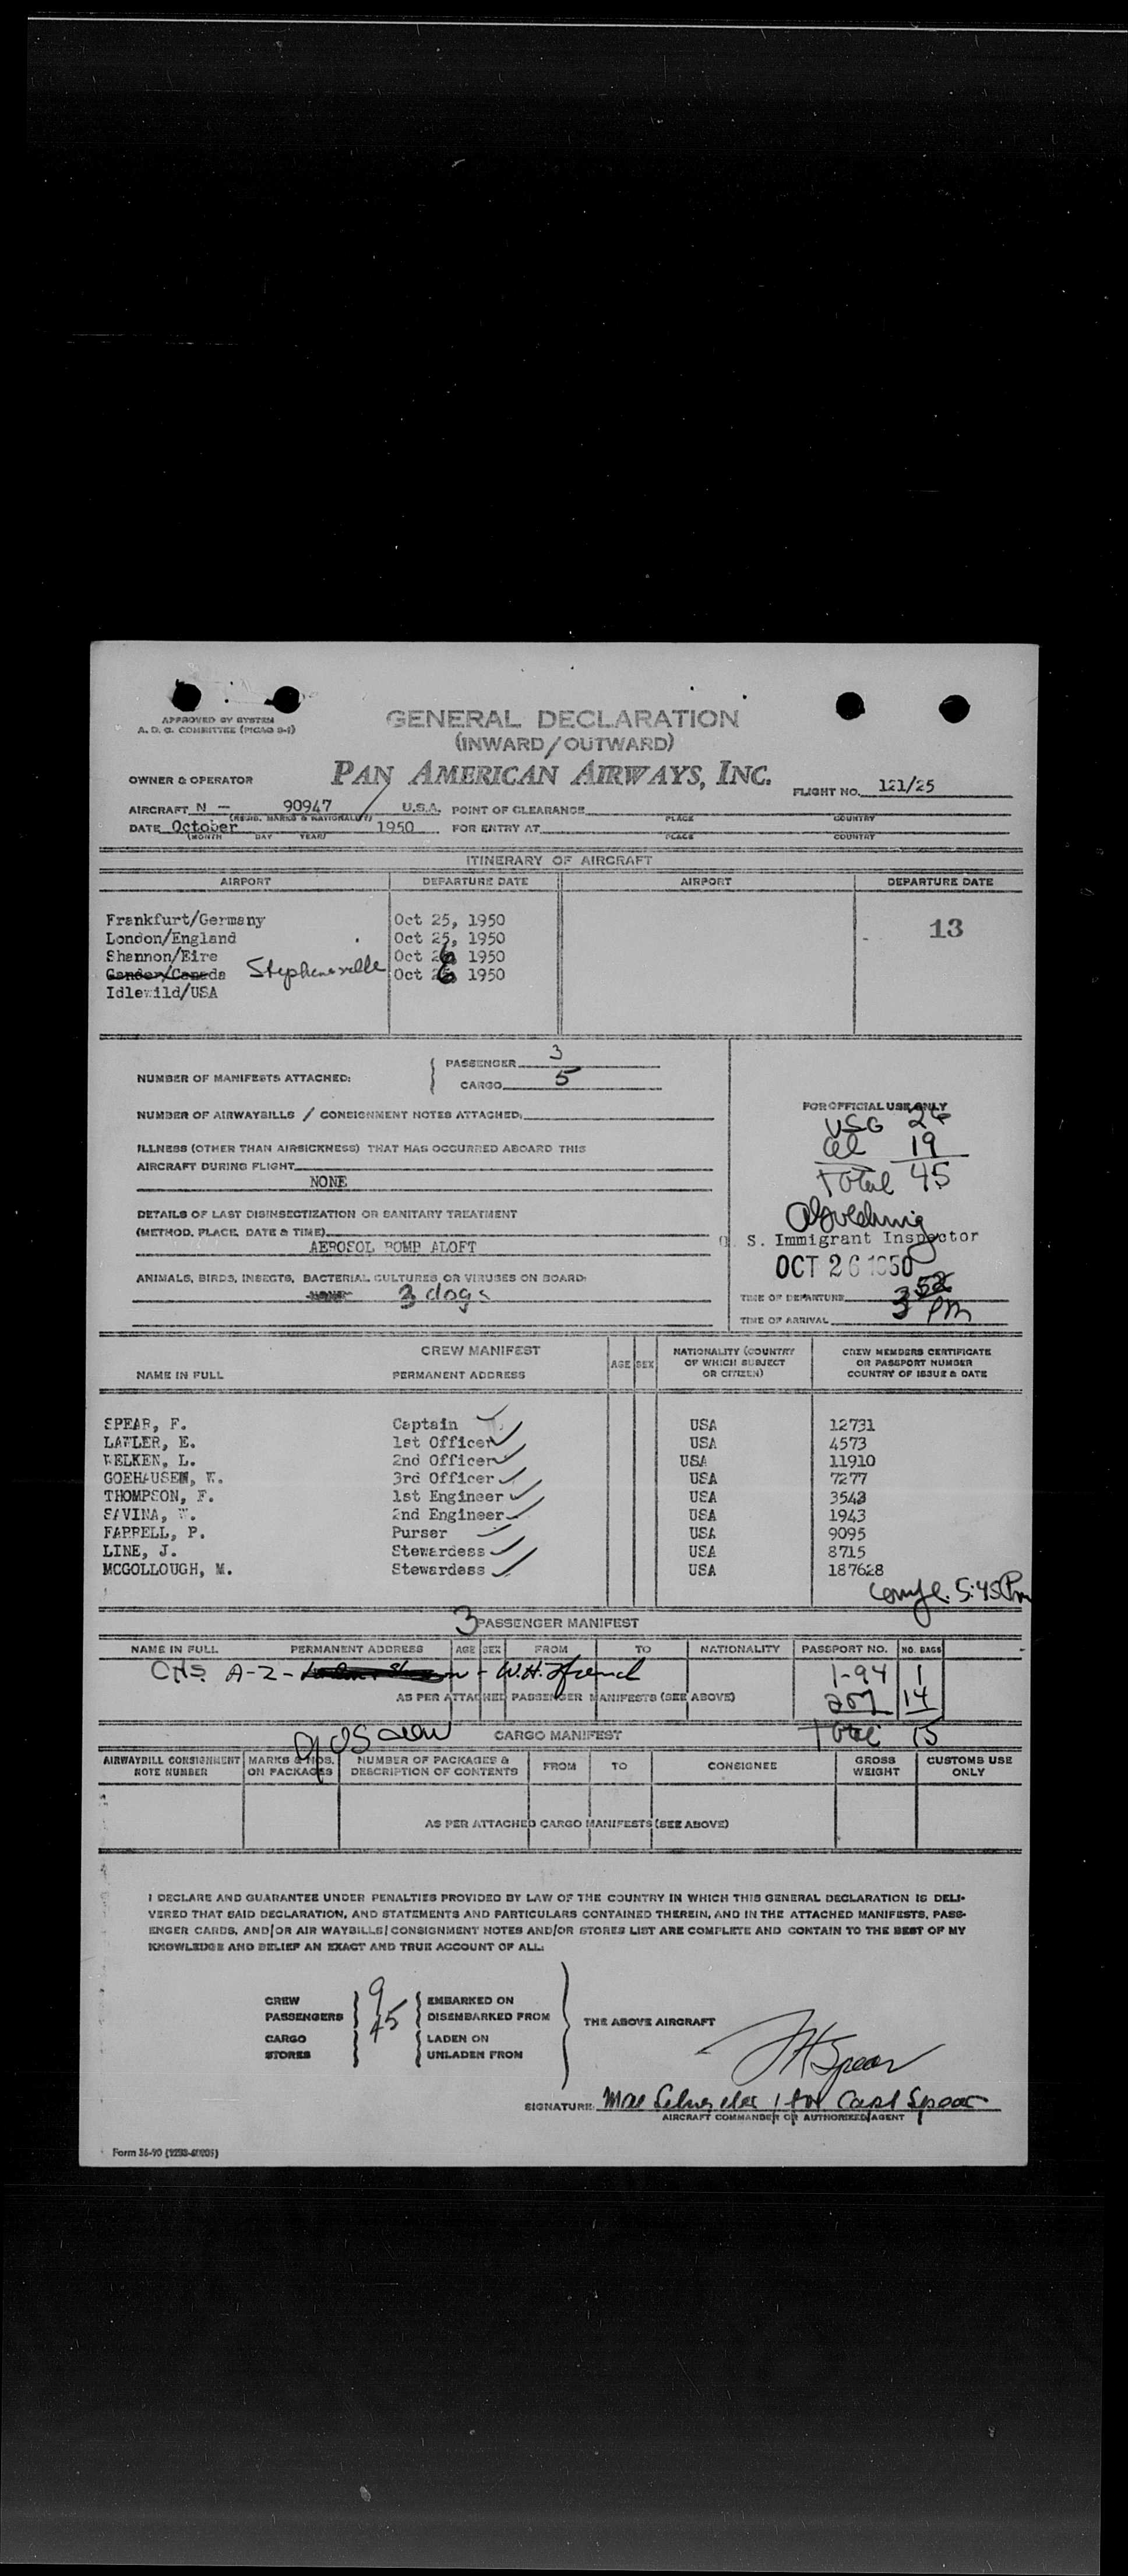 APPROVED BY SYSTEM
A. D. C. COMMITTEE (PICAO 9-1)
GENERAL DECLARATION
(INWARD/OUTWARD)
OWNER & OPERATOR PAN AMERICAN AIRWAYS, INC.
FLIGHT NO. 121/25
AIRCRAFT N - 90947 / U.S.A. POINT OF CLEARANCE
(REGD. MARKS & NATIONALITY) PLACE COUNTRY
DATE October 1950 FOR ENTRY AT
(MONTH DAY YEAR) PLACE COUNTRY
ITINERARY OF AIRCRAFT
AIRPORT DEPARTURE DATE AIRPORT DEPARTURE DATE
Frankfurt/Germany Oct 25, 1950 13
London/England Oct 25, 1950
Shannon/Eire Oct 26 1950
Gander/Canada Stephenville Oct 26 1950
Idlewild/USA
NUMBER OF MANIFESTS ATTACHED: PASSENGER 3
CARGO 5
NUMBER OF AIRWAYBILLS / CONSIGNMENT NOTES ATTACHED:
ILLNESS (OTHER THAN AIRSICKNESS) THAT HAS OCCURRED ABOARD THIS
AIRCRAFT DURING FLIGHT
NONE
DETAILS OF LAST DISINSECTIZATION OR SANITARY TREATMENT
(METHOD, PLACE, DATE & TIME)
AEROSOL BOMB ALOFT
ANIMALS, BIRDS, INSECTS, BACTERIAL CULTURES OR VIRUSES ON BOARD:
NONE 3 dogs
FOR OFFICIAL USE ONLY
USG 26
al 19
Total 45
S. Immigrant Inspector
OCT 26 1950
TIME OF DEPARTURE 352
TIME OF ARRIVAL 3 PM
CREW MANIFEST
NAME IN FULL PERMANENT ADDRESS AGE SEX NATIONALITY (COUNTRY OF WHICH SUBJECT OR CITIZEN) CREW MEMBERS CERTIFICATE OR PASSPORT NUMBER COUNTRY OF ISSUE & DATE
SPEAR, F. Captain USA 12731
LAFLER, E. 1st Officer USA 4573
WELKEN, L. 2nd Officer USA 11910
GOEHAUSEN, W. 3rd Officer USA 7277
THOMPSON, F. 1st Engineer USA 3543
SAVINA, W. 2nd Engineer USA 1943
FARRELL, P. Purser USA 9095
LINE, J. Stewardess USA 8715
MCGOLLOUGH, M. Stewardess USA 187628
5:45 Pm
3 PASSENGER MANIFEST
NAME IN FULL PERMANENT ADDRESS AGE SEX FROM TO NATIONALITY PASSPORT NO. NO. BAGS
A-2- - W.H. 1-94 1
AS PER ATTACHED PASSENGER MANIFESTS (SEE ABOVE) 257 14
Total 15
CARGO MANIFEST
AIRWAYBILL CONSIGNMENT NOTE NUMBER MARKS & NOS. ON PACKAGES NUMBER OF PACKAGES & DESCRIPTION OF CONTENTS FROM TO CONSIGNEE GROSS WEIGHT CUSTOMS USE ONLY
AS PER ATTACHED CARGO MANIFESTS (SEE ABOVE)
I DECLARE AND GUARANTEE UNDER PENALTIES PROVIDED BY LAW OF THE COUNTRY IN WHICH THIS GENERAL DECLARATION IS DELI-
VERED THAT SAID DECLARATION, AND STATEMENTS AND PARTICULARS CONTAINED THEREIN, AND IN THE ATTACHED MANIFESTS, PASS-
ENGER CARDS, AND/OR AIR WAYBILLS/CONSIGNMENT NOTES AND/OR STORES LIST ARE COMPLETE AND CONTAIN TO THE BEST OF MY
KNOWLEDGE AND BELIEF AN EXACT AND TRUE ACCOUNT OF ALL:
CREW 9 EMBARKED ON
PASSENGERS 45 DISEMBARKED FROM THE ABOVE AIRCRAFT
CARGO LADEN ON
STORES UNLADEN FROM
Spear
SIGNATURE for Capt Spear
AIRCRAFT COMMANDER OR AUTHORIZED AGENT